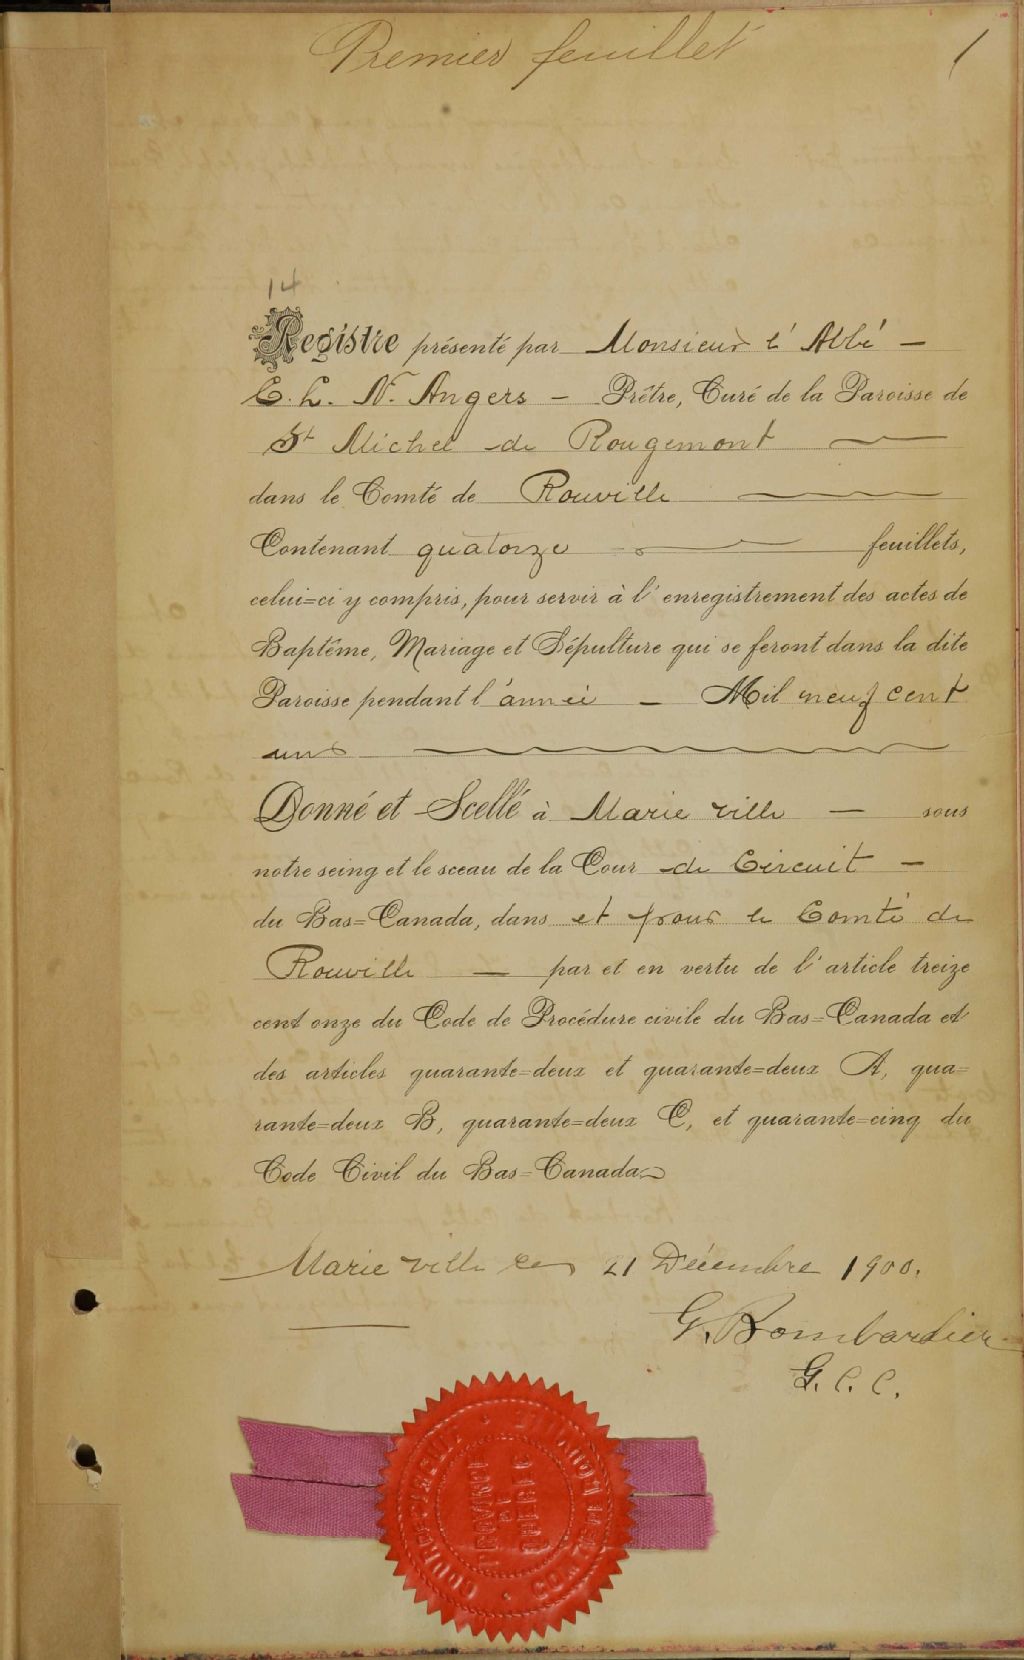 Premier feuillet
1
14
Registre présenté par Monsieur l'Abbé –
C. L. N. Angers – Prêtre, Curé de la Paroisse de
St Michel de Rougemont
dans le Comté de Rouville
Contenant quatorze feuillets,
celui=ci y compris, pour servir à l'enregistrement des actes de
Baptême, Mariage et Sépulture qui se feront dans la dite
Paroisse pendant l'année – Mil neuf cent
un
Donné et Scellé à Marieville – sous
notre seing et le sceau de la Cour de Circuit –
du Bas=Canada, dans et pour le Comté de
Rouville – par et en vertu de l'article treize
cent onze du Code de Procédure civile du Bas=Canada et
des articles quarante=deux et quarante=deux A, qua=
rante=deux B, quarante=deux C, et quarante=cinq du
Code Civil du Bas=Canada
Marieville ce 21 Décembre 1900.
G. Bombardier
G. C. C.